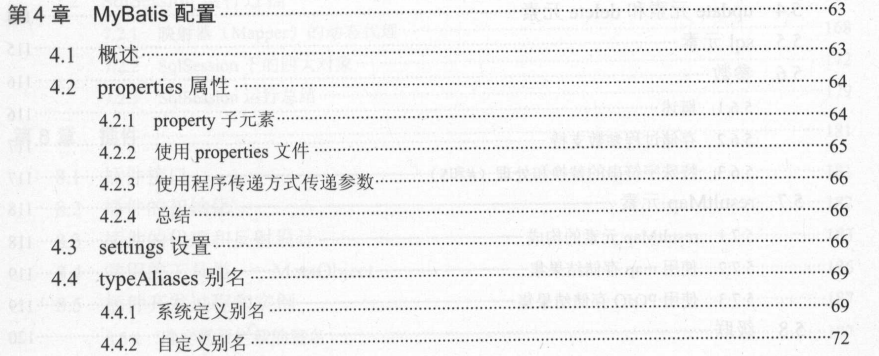 第 4 章 MyBatis 配置································63
4.1 概述································63
4.2 properties 属性································64
4.2.1 property 子元素································64
4.2.2 使用 properties 文件································65
4.2.3 使用程序传递方式传递参数································66
4.2.4 总结································66
4.3 settings 设置································66
4.4 typeAliases 别名································69
4.4.1 系统定义别名································69
4.4.2 自定义别名································72